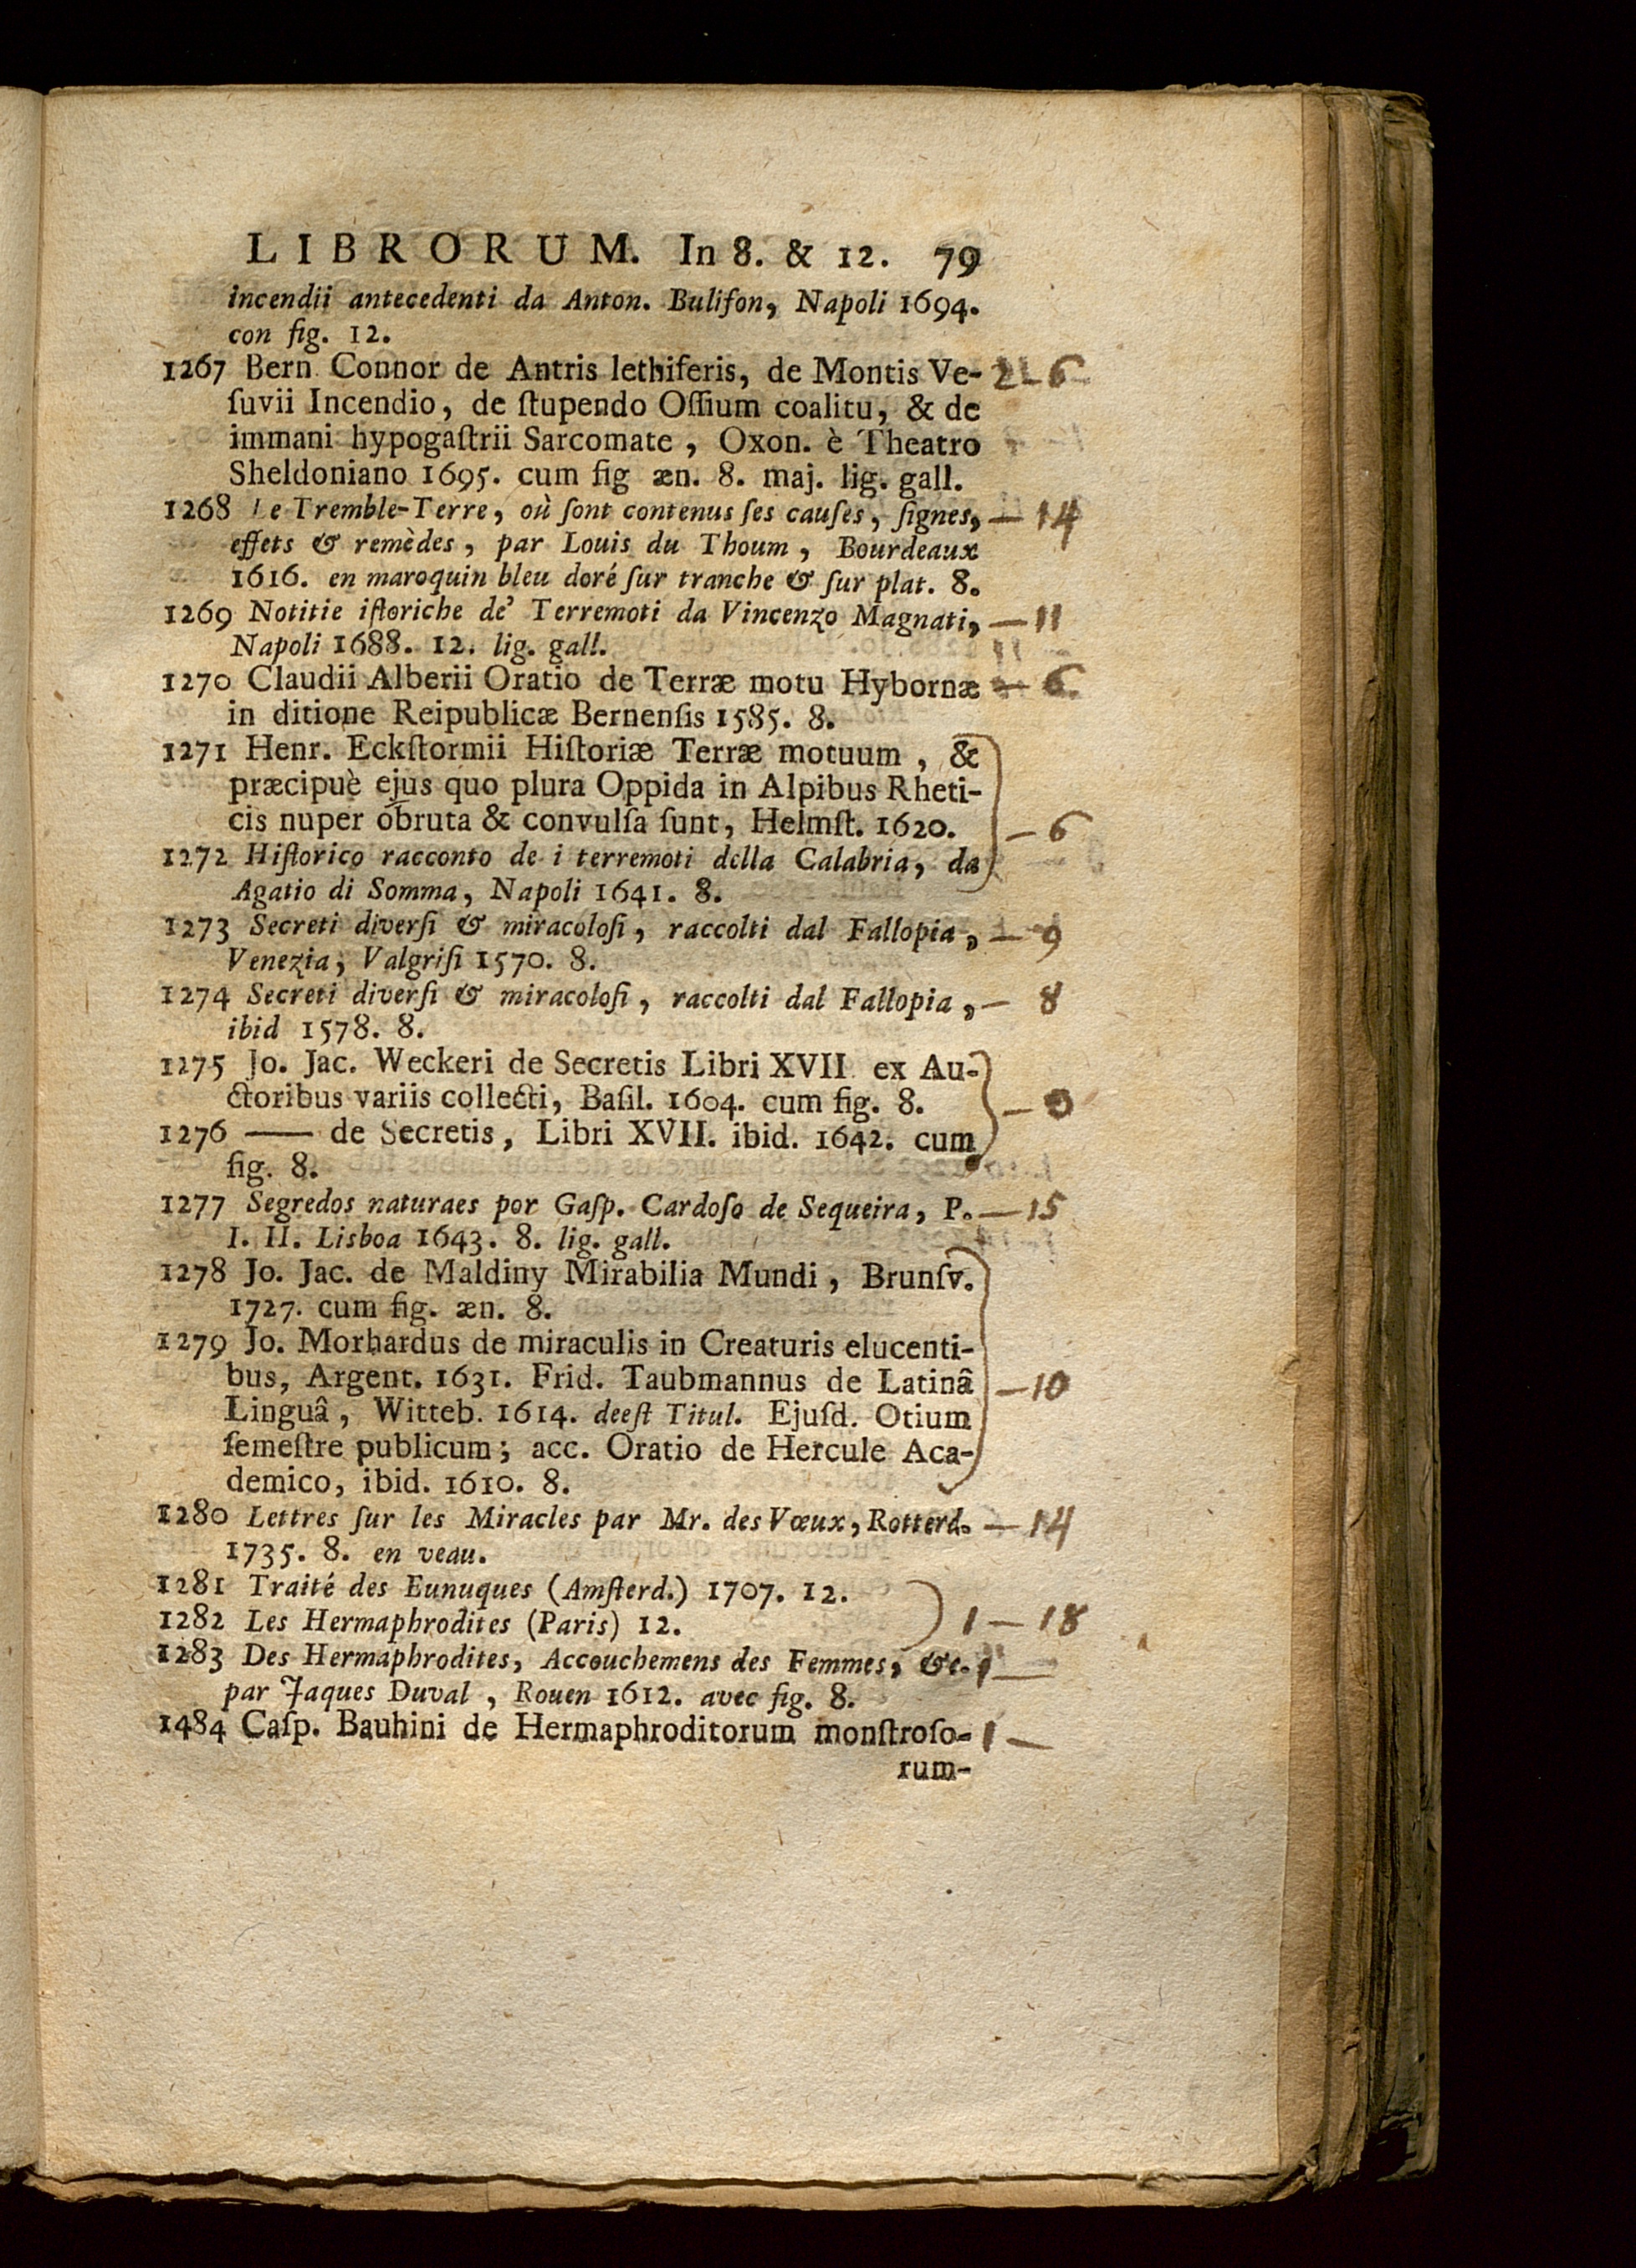 LIBRORUM. In 8. & 12. 79
incendii antecedenti da Anton. Bulifon, Napoli 1694.
con fig. 12.
1267 Bern Connor de Antris lethiferis, de Montis Ve- 2-6
ſuvii Incendio, de ſtupendo Oſſium coalitu, & de
immani hypogaſtrii Sarcomate, Oxon. è Theatro
Sheldoniano 1695. cum fig æn. 8. maj. lig. gall.
1268 Le Tremble-Terre, où ſont contenus ſes cauſes, ſignes, — 14
effets & remèdes, par Louis du Thoum, Bourdeaux
1616. en maroquin bleu doré ſur tranche & ſur plat. 8.
1269 Notitie iſtoriche de' Terremoti da Vincenzo Magnati, — 11
Napoli 1688. 12. lig. gall.
1270 Claudii Alberii Oratio de Terræ motu Hybornæ — 6.
in ditione Reipublicæ Bernenſis 1585. 8.
1271 Henr. Eckſtormii Hiſtoriæ Terræ motuum, &
præcipuè ejus quo plura Oppida in Alpibus Rheti-
cis nuper obruta & convulſa ſunt, Helmſt. 1620. — 6
1272 Hiſtorico racconto de i terremoti della Calabria, da
Agatio di Somma, Napoli 1641. 8.
1273 Secreti diverſi & miracoloſi, raccolti dal Fallopia, — 9
Venezia, Valgriſi 1570. 8.
1274 Secreti diverſi & miracoloſi, raccolti dal Fallopia, — 8
ibid 1578. 8.
1275 Jo. Jac. Weckeri de Secretis Libri XVII ex Au-
ctoribus variis collecti, Baſil. 1604. cum fig. 8.
1276 —— de Secretis, Libri XVII. ibid. 1642. cum
fig. 8.
1277 Segredos naturaes por Gaſp. Cardoſo de Sequeira, P. — 15
I. II. Lisboa 1643. 8. lig. gall.
1278 Jo. Jac. de Maldiny Mirabilia Mundi, Brunſv.
1727. cum fig. æn. 8.
1279 Jo. Morhardus de miraculis in Creaturis elucenti-
bus, Argent. 1631. Frid. Taubmannus de Latinâ — 10
Linguâ, Witteb. 1614. deeſt Titul. Ejuſd. Otium
ſemeſtre publicum; acc. Oratio de Hercule Aca-
demico, ibid. 1610. 8.
1280 Lettres ſur les Miracles par Mr. des Vœux, Rotterd. — 14
1735. 8. en veau.
1281 Traité des Eunuques (Amſterd.) 1707. 12.
1282 Les Hermaphrodites (Paris) 12. 1 — 18
1283 Des Hermaphrodites, Accouchemens des Femmes, &c. 1 —
par Jaques Duval, Rouen 1612. avec fig. 8.
1484 Caſp. Bauhini de Hermaphroditorum monſtroſo- 1 —
rum-